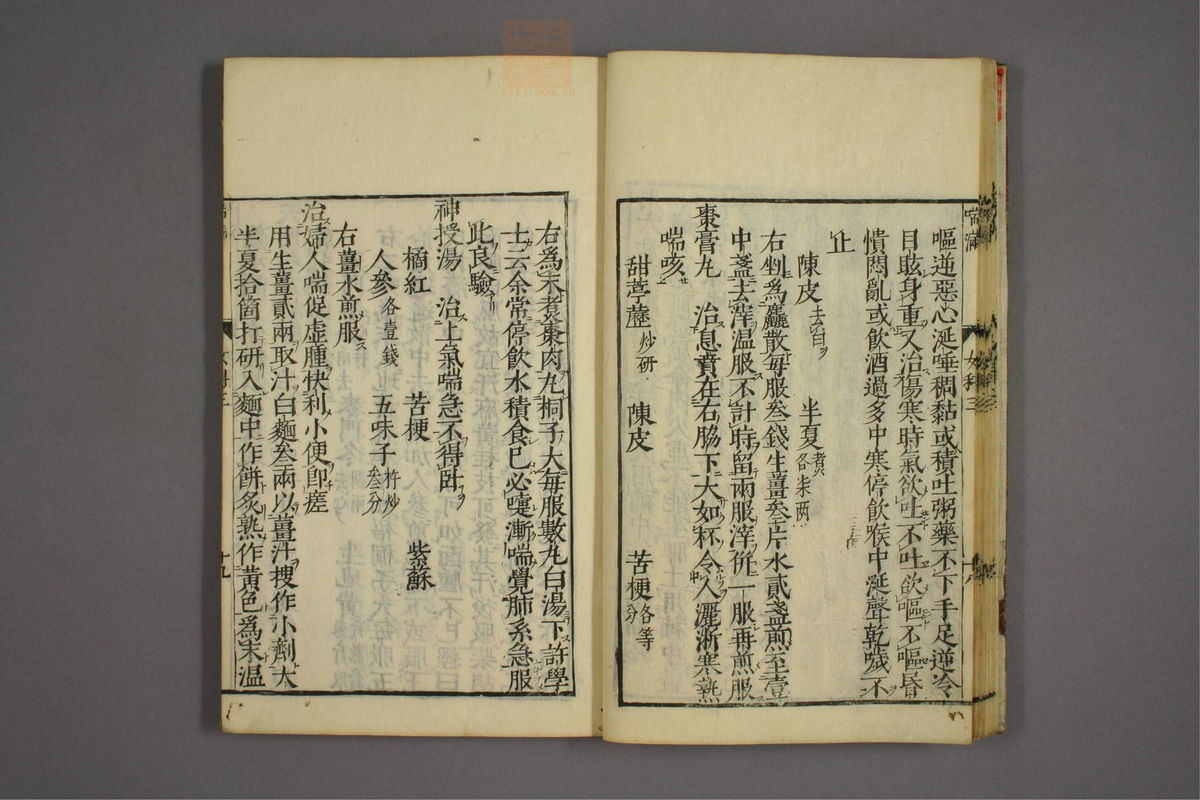 嘔逆惡心涎唾稠黏或積吐粥藥不下手足逆冷
目眩身重又治傷寒時氣欲吐不吐欲嘔不嘔昏
憒悶亂或飲酒過多中寒停飲喉中涎聲乾噦不
止
陳皮去白 半夏煮各柒兩
右剉爲麤散每服叁錢生薑叁片水貳盞煎至壹
中盞去滓温服不計時留兩服滓併一服再煎服
棗膏丸 治息賁在右脇下大如杯令人灑淅寒熱
喘咳
甜葶藶炒研 陳皮 苦梗各等分
喘滿 女科三
右爲末煮棗肉丸桐子大每服數丸白湯下許學
士云余常停飲水積食已必嚏漸喘覺肺系急服
此良驗
神授湯 治上氣喘急不得臥
橘紅 苦梗 紫蘇
人參各壹錢 五味子杵炒叁分
右薑水煎服
治婦人喘促虛腫快利小便卽瘥
用生薑貳兩取汁白麵叁兩以薑汁搜作小劑大
半夏拾箇打研入麵中作餅炙熟作黃色爲末温
十九